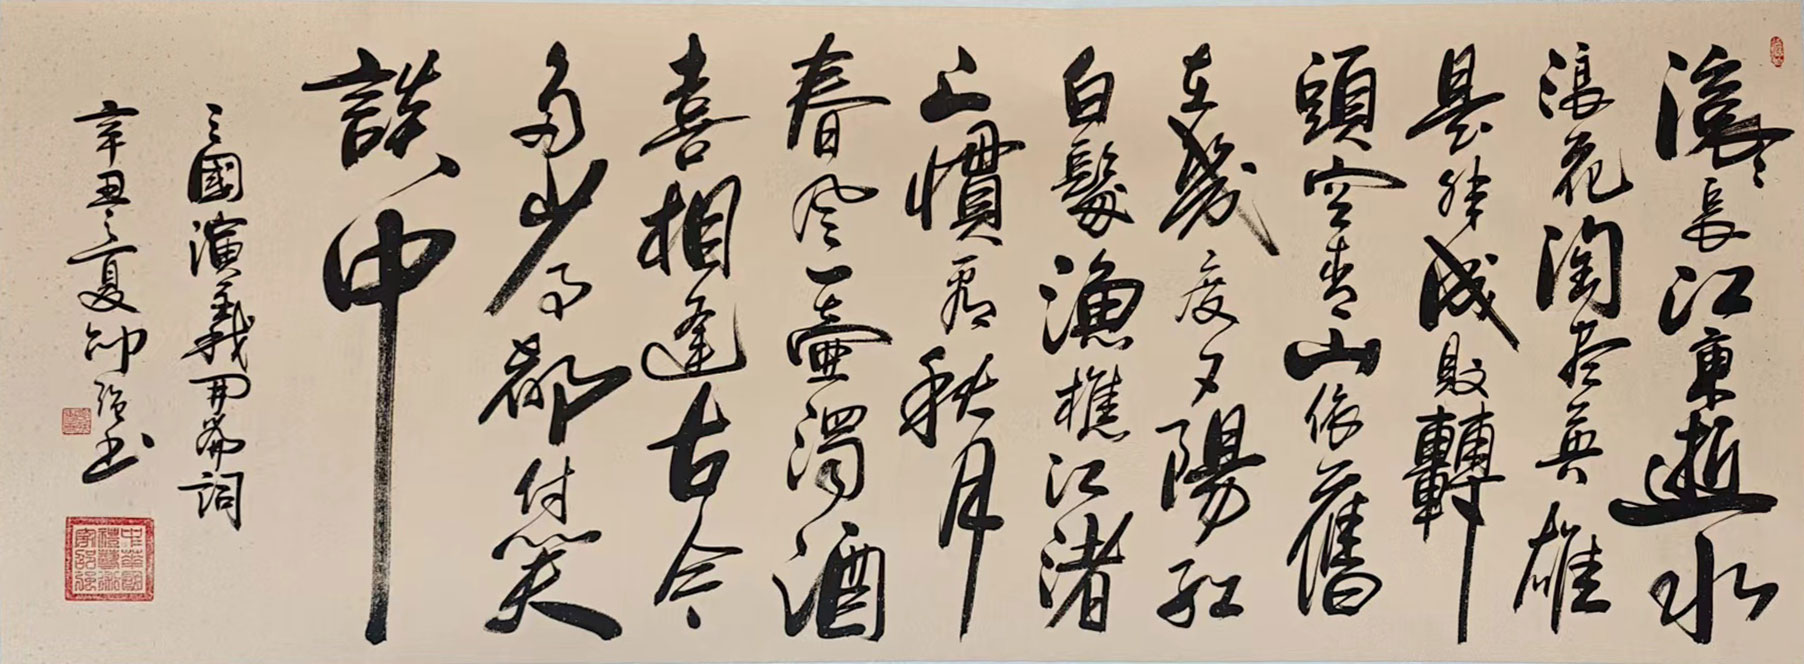 滚滚長江東逝水
浪花淘尽英雄
是非成敗轉
頭空青山依舊
在幾度夕陽紅
白髮漁樵江渚
上慣看秋月
春風一壺濁酒
喜相逢古今
多少事都付笑
談中
三國演義開篇詞
辛丑之夏邵强书
中華國
禮藝術
家邵强